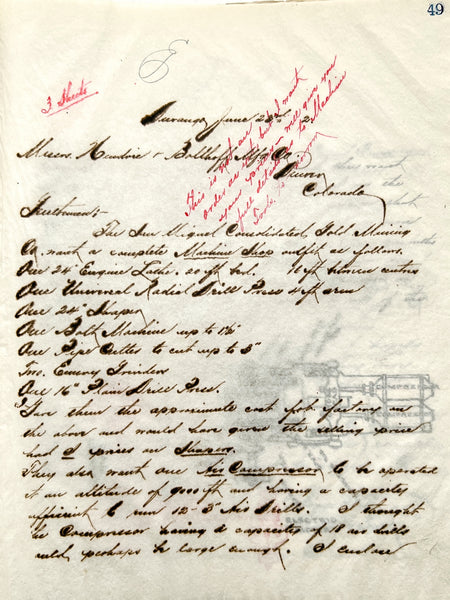 49
3 Sheets
Durango June 2
This is not an
order as
your
full details
Tools.
Messrs. Hendrie & Bolthoff Mfg Co
Denver
Colorado
Gentlemen:-
The San Miguel Consolidated Gold Mining
Co. want a complete Machine Shop outfit as follows.
One 24" Engine Lathe. 20 ft bed. 16 ft between centres
One Universal Radial Drill Press 4 ft arm
One 24" Shaper
One Bolt Machine up to 1½"
One Pipe Cutter to cut up to 3"
Two Emery Grinders
One 16" Plain Drill Press.
I gave them the approximate cost f.o.b. factory on
the above and would have given the selling price
had I prices on Shapers.
They also want one Air Compressor to be operated
at an altitude of 9000 ft and having a capacity
sufficient to run 12-3" Air Drills. I thought
the Compressor having a capacity of 18 air drills
would perhaps be large enough. I enclose